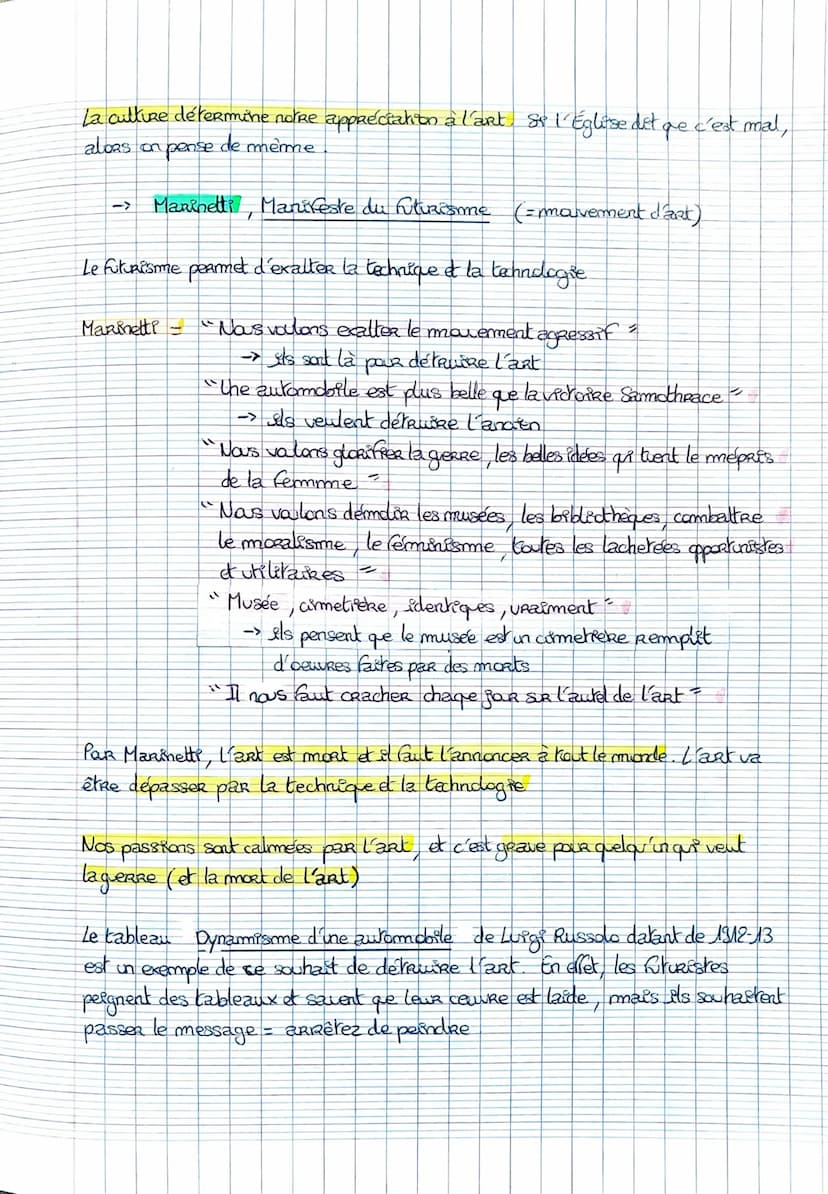 La culture détermine notre appréciation à l'art. Si l'Église dit que c'est mal,
alors on pense de même.
-> Marinetti, Manifeste du futurisme (= mouvement d'art)
Le futurisme permet d'exalter la technique et la technologie
Marinetti = "Nous voulons exalter le mouvement agressif"
-> ils sont là pour détruire l'art
"Une automobile est plus belle que la victoire Samothrace"
-> ils veulent détruire l'ancien
"Nous voulons glorifier la guerre, les belles idées qui tuent le mépris
de la femme"
"Nous voulons démolir les musées, les bibliothèques, combattre
le moralisme, le féminisme, toutes les lachetées opportunistes
et utilitaires"
"Musée, cimetière, identiques, vraiment"
-> ils pensent que le musée est un cimetière remplit
d'oeuvres faites par des morts
"Il nous faut cracher chaque jour sur l'autel de l'art"
Par Marinetti, l'art est mort et il faut l'annoncer à tout le monde. L'art va
être dépasser par la technique et la technologie
Nos passions sont calmées par l'art, et c'est grave pour quelqu'un qui veut
la guerre (et la mort de l'art)
Le tableau Dynamisme d'une automobile de Luigi Russolo datant de 1912-13
est un exemple de ce souhait de détruire l'art. En effet, les futuristes
peignent des tableaux et savent que leur oeuvre est laide, mais ils souhaitent
passer le message = arrêtez de peindre